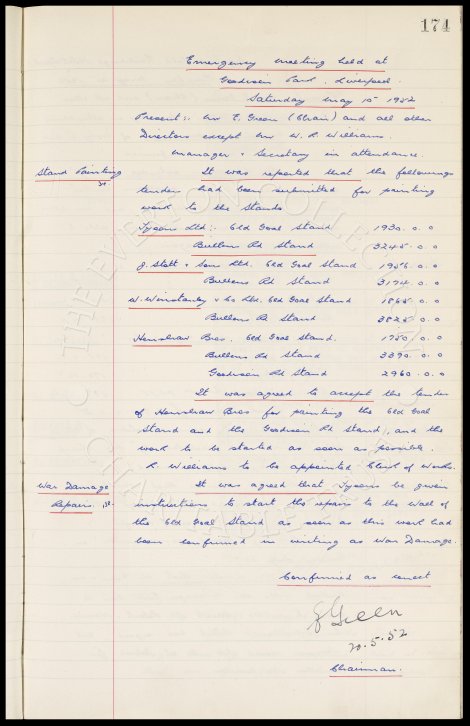 174
Emergency meeting held at
Goodison Park, Liverpool.
Saturday May 10 1952
Present:. Mr E. Green (Chair) and all other
Directors except Mr W. R. Williams.
Manager & Secretary in attendance.
Stand Painting It was reported that the followings
tenders had been submitted for painting
work to the Stands.
Tysons Ltd:- Gld Goal Stand 1930. 0. 0
Bullens Rd Stand 3245. 0. 0
J. Stott & Son Ltd. Gld Goal Stand 1956. 0. 0
Bullens Rd Stand 3194. 0. 0
W. Winstanley & Co Ltd. Gld Goal Stand 1865. 0. 0
Bullens Rd Stand 3825. 0. 0
Henshaw Bros. Gld Goal Stand. 1750. 0. 0
Bullens Rd Stand 3390. 0. 0
Goodison Rd Stand 2960. 0. 0
It was agreed to accept the tender
of Henshaw Bros for painting the Gld Goal
Stand and the Goodison Rd Stand, and the
work to be started as soon as possible.
R Williams to be appointed Clerk of Works.
War Damage It was agreed that Tysons be given
Repairs. instructions to start the repairs to the Wall of
the Gld Goal Stand as soon as this work had
been confirmed in writing as War Damage.
Confirmed as correct
E Green
20.5.52
Chairman.
THE EVERTON COLLECTION
CHARITABLE TRUST